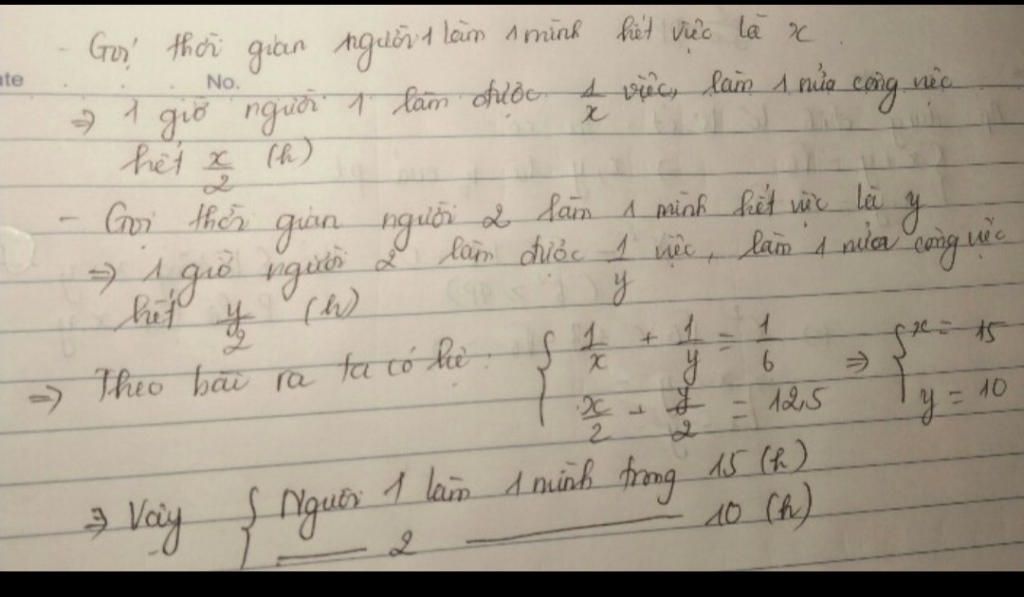 - Gọi thời gian người 1 làm 1 mình hết việc là x.
No.
⇒ 1 giờ người 1 làm được 1/x việc, làm 1 nửa công việc
hết x/2 (h)
- Gọi thời gian người 2 làm 1 mình hết việc là y
⇒ 1 giờ người 2 làm được 1/y việc, làm 1 nửa công việc
hết y/2 (h)
⇒ Theo bài ra ta có hệ: { 1/x + 1/y = 1/6 ⇒ { x = 15
x/2 + y/2 = 12,5 y = 10
⇒ Vậy { Người 1 làm 1 mình trong 15 (h)
—— 2 —————— 10 (h)